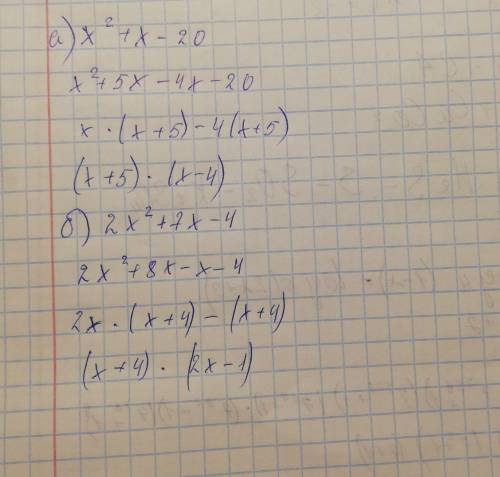 а) x² + x - 20
x² + 5x - 4x - 20
x · (x+5) - 4(x+5)
(x+5) · (x-4)
б) 2x² + 7x - 4
2x² + 8x - x - 4
2x · (x+4) - (x+4)
(x+4) · (2x-1)